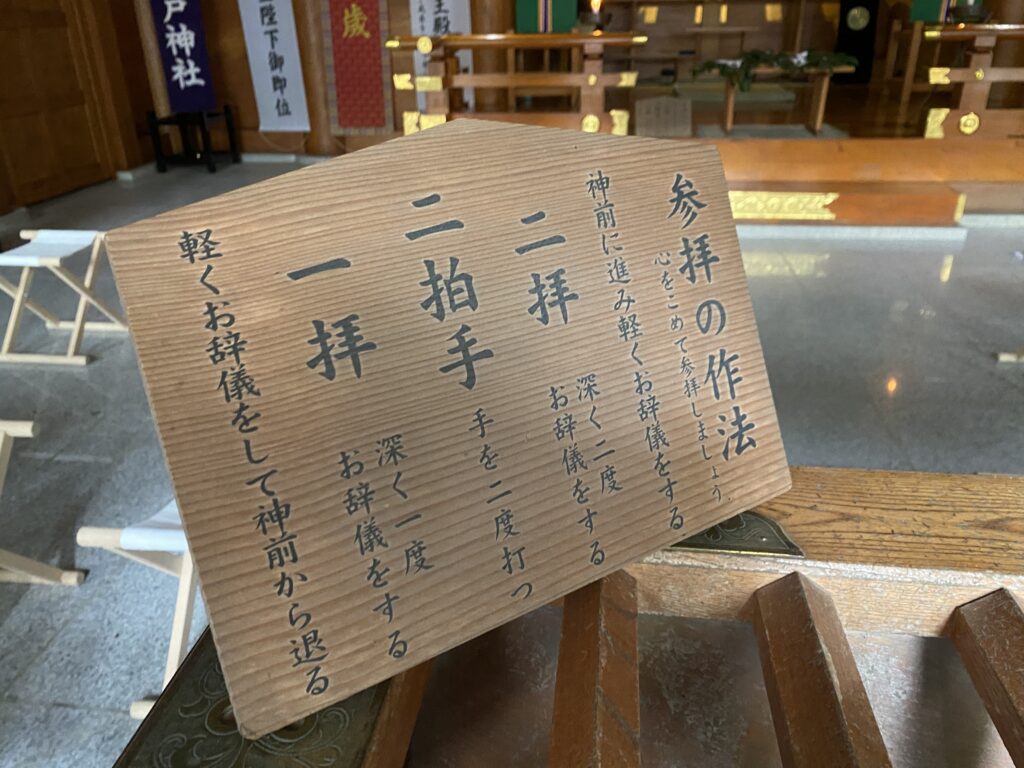 参拝の作法
心をこめて参拝しましょう。
神前に進み軽くお辞儀をする
二拝
深く二度
お辞儀をする
二拍手
手を二度打つ
一拝
深く一度
お辞儀をする
軽くお辞儀をして神前から退る
戸神社
陛下御即位
歳